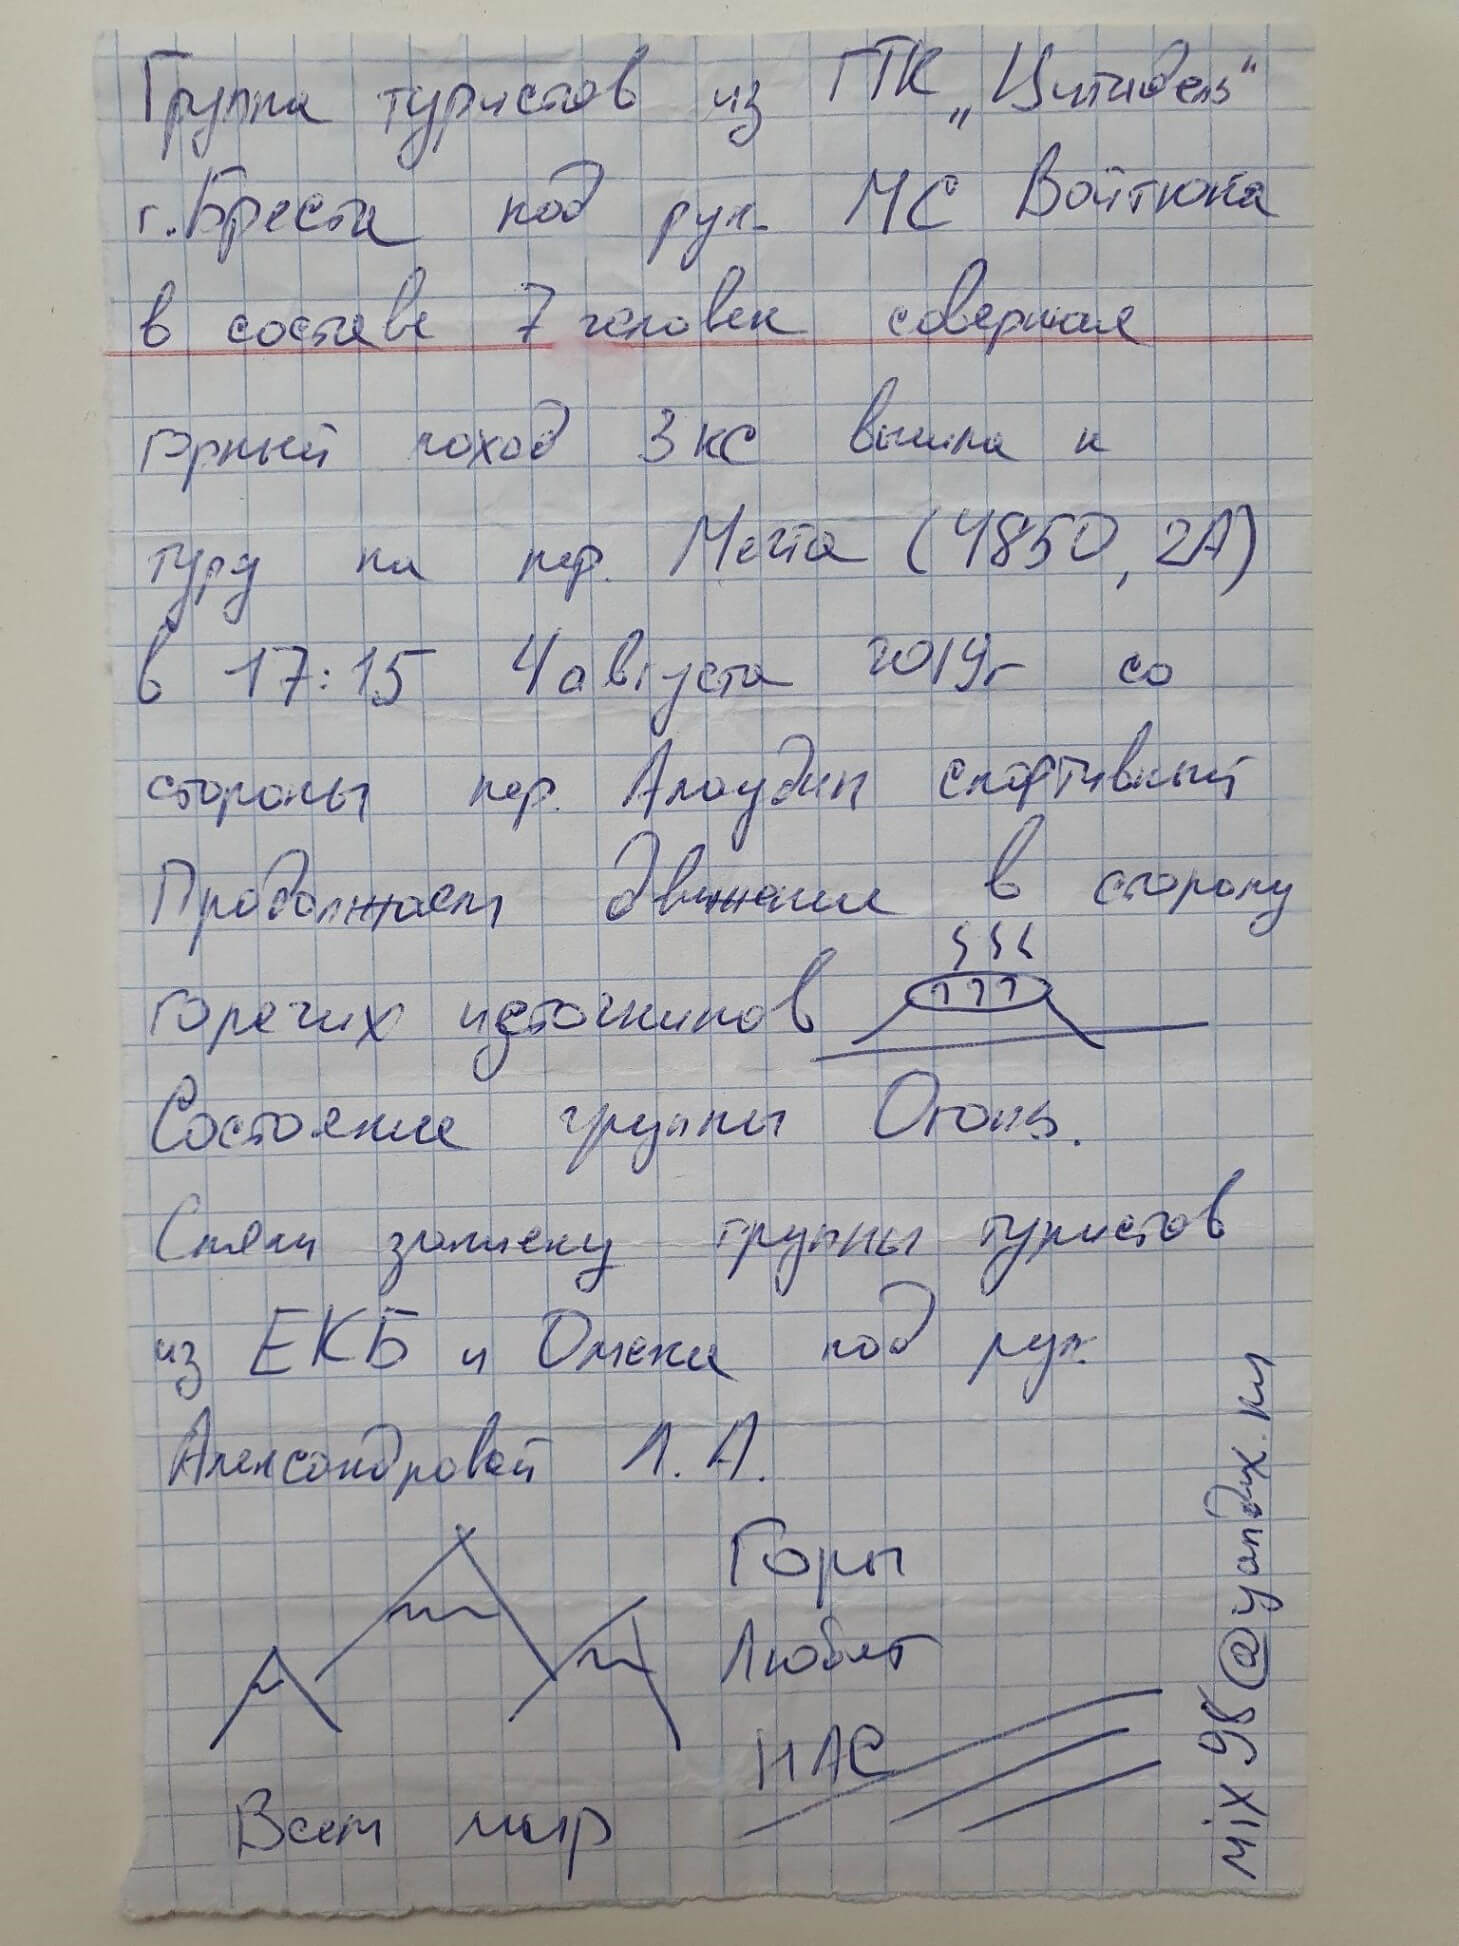 Группа туристов из ГТК „Цитадель"
г. Бреста под рук. МС Войтюка
в составе 7 человек совершая
горный поход 3 кс вышла к
туру на пер. Мечта (4850, 2А)
в 17:15 4 августа 2019г со
стороны пер. Алаудин спортивный
Продолжаем движение в сторону
горечих источников
Состояние группы Огонь.
Сняли записку группы туристов
из ЕКБ и Омска под рук.
Александровой Л. А.
Горы
Любят
НАС
Всем мир